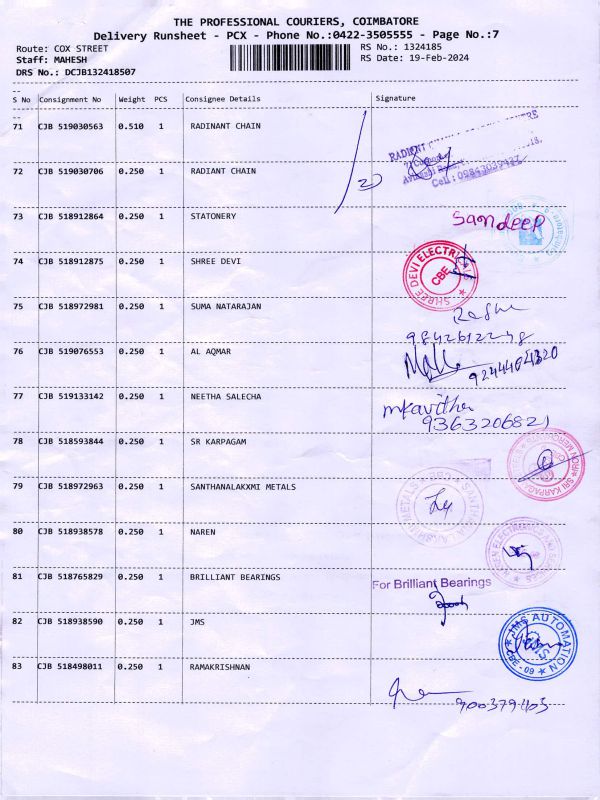 THE PROFESSIONAL COURIERS, COIMBATORE
Delivery Runsheet - PCX - Phone No.:0422-3505555 - Page No.:7
Route: COX STREET RS No.: 1324185
Staff: MAHESH RS Date: 19-Feb-2024
DRS No.: DCJB132418507
S No Consignment No Weight PCS Consignee Details Signature
71 CJB 519030563 0.510 1 RADINANT CHAIN
RADIANT
72 CJB 519030706 0.250 1 RADIANT CHAIN
73 CJB 518912864 0.250 1 STATONERY Sandeep
74 CJB 518912875 0.250 1 SHREE DEVI SHREE DEVI ELECTRICALS CBE
75 CJB 518972981 0.250 1 SUMA NATARAJAN
76 CJB 519076553 0.250 1 AL AQMAR
77 CJB 519133142 0.250 1 NEETHA SALECHA mkavitha
9363206821
78 CJB 518593844 0.250 1 SR KARPAGAM
79 CJB 518972963 0.250 1 SANTHANALAKXMI METALS
80 CJB 518938578 0.250 1 NAREN
81 CJB 518765829 0.250 1 BRILLIANT BEARINGS For Brilliant Bearings
82 CJB 518938590 0.250 1 JMS JMS AUTOMATION CBE - 09
83 CJB 518498011 0.250 1 RAMAKRISHNAN